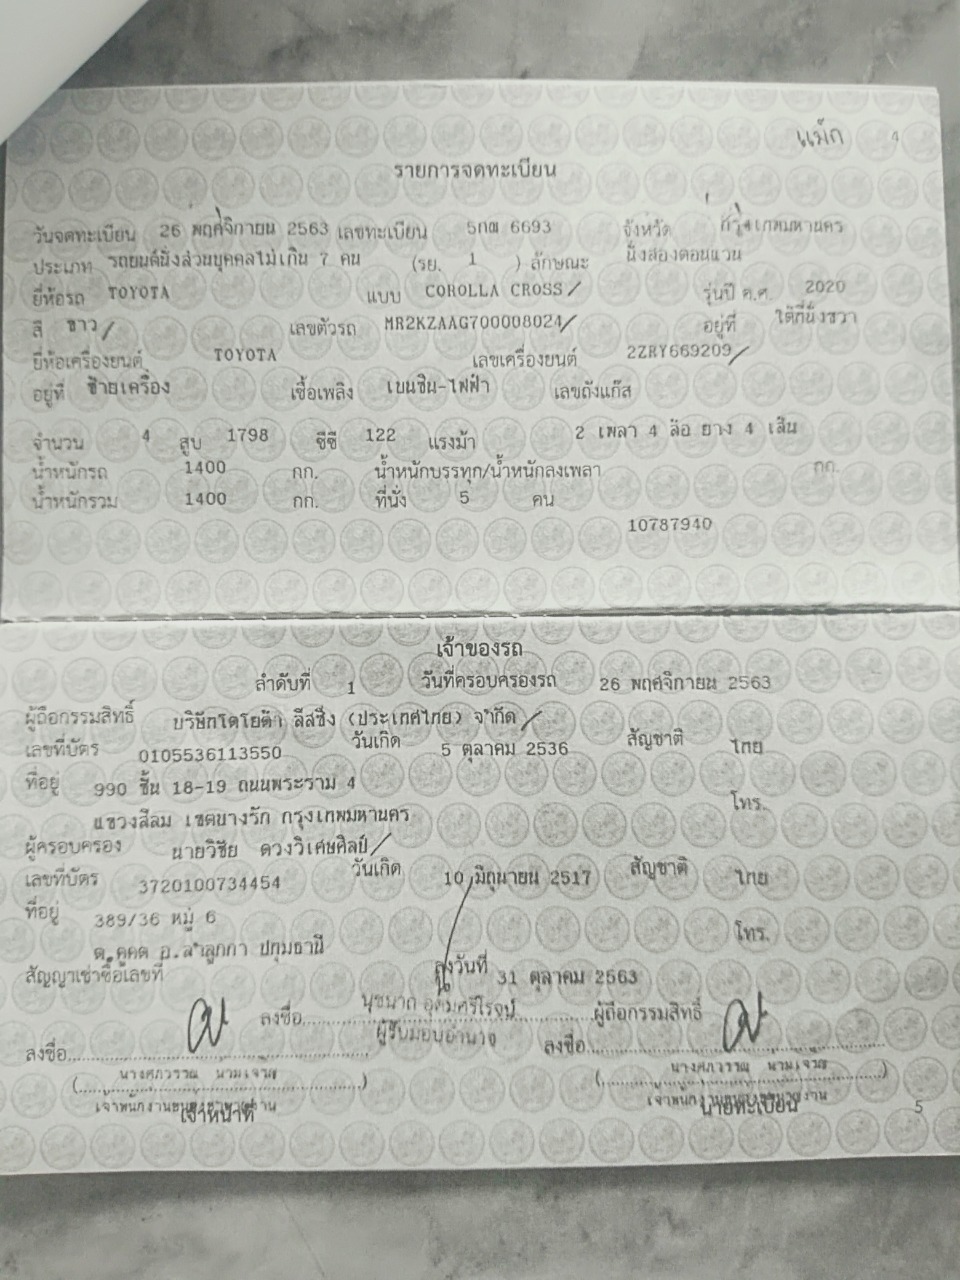 แม็ก 4
รายการจดทะเบียน
วันจดทะเบียน 26 พฤศจิกายน 2563 เลขทะเบียน 5กฒ 6693 จังหวัด กรุงเทพมหานคร
ประเภท รถยนต์นั่งส่วนบุคคลไม่เกิน 7 คน (รย. 1 ) ลักษณะ นั่งสองตอนแวน
ยี่ห้อรถ TOYOTA แบบ COROLLA CROSS รุ่นปี ค.ศ. 2020
สี ขาว เลขตัวรถ MR2KZAAG700008024 อยู่ที่ ใต้ที่นั่งขวา
ยี่ห้อเครื่องยนต์ TOYOTA เลขเครื่องยนต์ 2ZRY669209
อยู่ที่ ซ้ายเครื่อง เชื้อเพลิง เบนซิน-ไฟฟ้า เลขถังแก๊ส
จำนวน 4 สูบ 1798 ซีซี 122 แรงม้า 2 เพลา 4 ล้อ ยาง 4 เส้น
น้ำหนักรถ 1400 กก. น้ำหนักบรรทุก/น้ำหนักลงเพลา กก.
น้ำหนักรวม 1400 กก. ที่นั่ง 5 คน
10787940
เจ้าของรถ
ลำดับที่ 1 วันที่ครอบครองรถ 26 พฤศจิกายน 2563
ผู้ถือกรรมสิทธิ์ บริษัทโตโยต้า ลีสซิ่ง (ประเทศไทย) จำกัด
เลขที่บัตร 0105536113550 วันเกิด 5 ตุลาคม 2536 สัญชาติ ไทย
ที่อยู่ 990 ชั้น 18-19 ถนนพระราม 4
แขวงสีลม เขตบางรัก กรุงเทพมหานคร โทร.
ผู้ครอบครอง นายวิชัย ดวงวิเศษศิลป์
เลขที่บัตร 3720100734454 วันเกิด 10 มิถุนายน 2517 สัญชาติ ไทย
ที่อยู่ 389/36 หมู่ 6
ต.คูคต อ.ลำลูกกา ปทุมธานี โทร.
สัญญาเช่าซื้อเลขที่ ลงวันที่ 31 ตุลาคม 2563
ลงชื่อ นุชนาถ อุดมศรีไรจน์ ผู้ถือกรรมสิทธิ์
ผู้รับมอบอำนาจ
ลงชื่อ ลงชื่อ
(นางศภวรรณ นามเจริญ) (นางศภวรรณ นามเจริญ)
เจ้าหน้าที่ นายทะเบียน 5